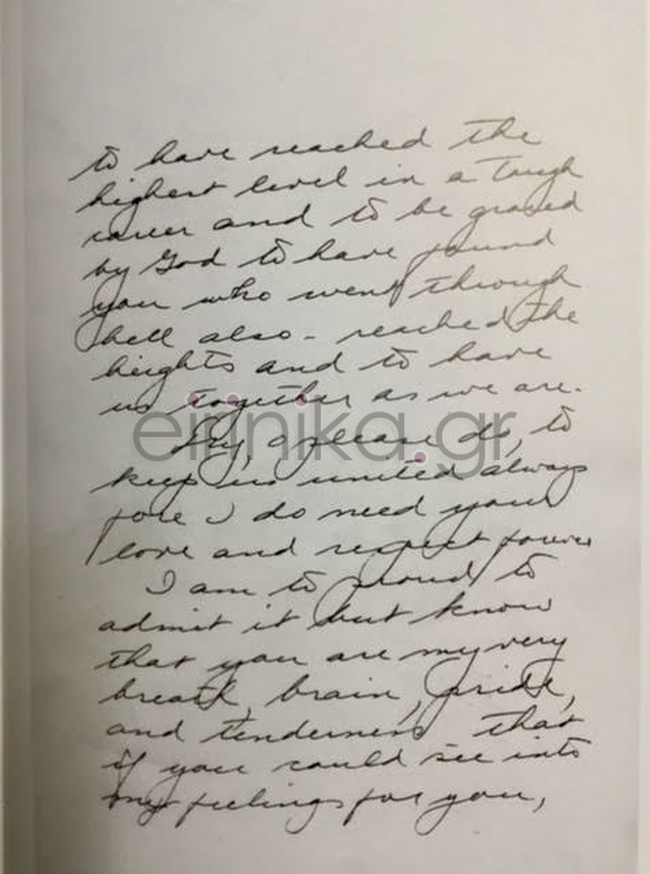 to have reached the
highest level in a tough
career and to be graced
by God to have found
you who went through
hell also - reached the
heights and to have
us together as we are.
eirinika.gr
Try, o please do, to
keep us united always
fore I do need your
love and respect forever
I am to proud to
admit it but know
that you are my very
breath, brain, pride,
and tenderness that
if you could see into
my feelings for you,